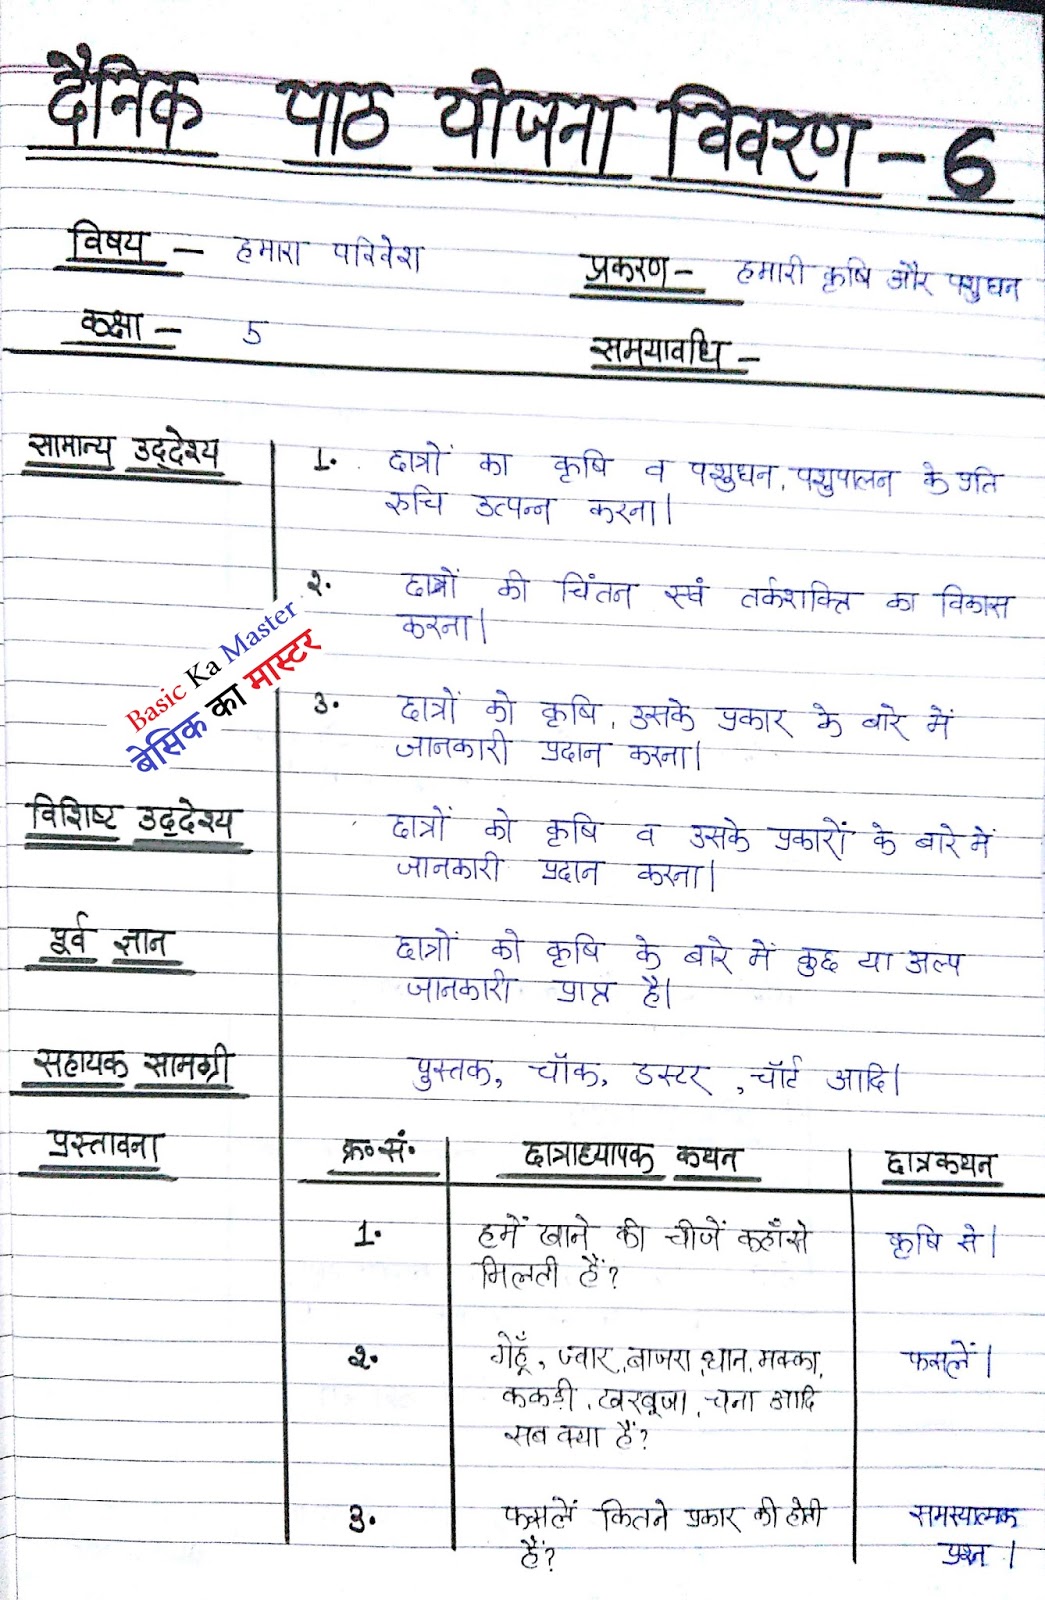 दैनिक पाठ योजना विवरण - 6
विषय - हमारा परिवेश
प्रकरण - हमारी कृषि और पशुधन
कक्षा - 5
समयावधि -
सामान्य उद्देश्य
1. छात्रों का कृषि व पशुधन, पशुपालन के प्रति
रुचि उत्पन्न करना।
२. छात्रों की चिंतन एवं तर्कशक्ति का विकास
करना।
Basic Ka Master
बेसिक का मास्टर
3. छात्रों को कृषि, उसके प्रकार के बारे में
जानकारी प्रदान करना।
विशिष्ट उद्देश्य
छात्रों को कृषि व उसके प्रकारों के बारे में
जानकारी प्रदान करना।
पूर्व ज्ञान
छात्रों को कृषि के बारे में कुछ या अल्प
जानकारी प्राप्त है।
सहायक सामग्री
पुस्तक, चॉक, डस्टर, चॉर्ट आदि।
प्रस्तावना क्र०सं. छात्राध्यापक कथन छात्रकथन
1. हमें खाने की चीजें कहाँ से कृषि से।
मिलती हैं?
२. गेहूँ, ज्वार, बाजरा, धान, मक्का, फसलें।
ककड़ी, खरबूजा, चना आदि
सब क्या हैं?
3. फसलें कितने प्रकार की होती समस्यात्मक
हैं? प्रश्न।